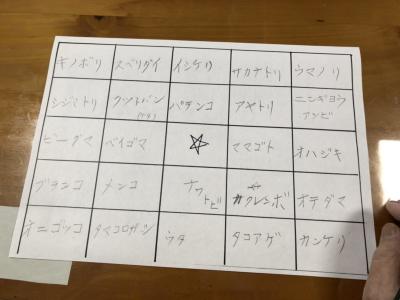 キノボリ スベリダイ イシケリ サカナトリ ウマノリ
シジミトリ パチンコ アヤトリ ニンギョウ
アソビ
ビーダマ ベイゴマ ☆ ママゴト オハジキ
ブランコ メンコ ナワ
トビ カクレンボ オテダマ
オニゴッコ タマコロガシ ウタ タコアゲ カンケリ